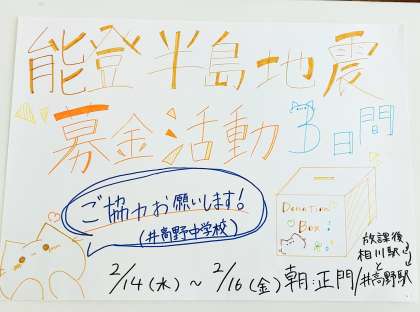 能登半島地震
募金活動3日間
ご協力お願いします!
(井高野中学校)
Donation
Box
2/14(水)～2/16(金)朝:正門/
放課後
相川駅
と
井高野駅